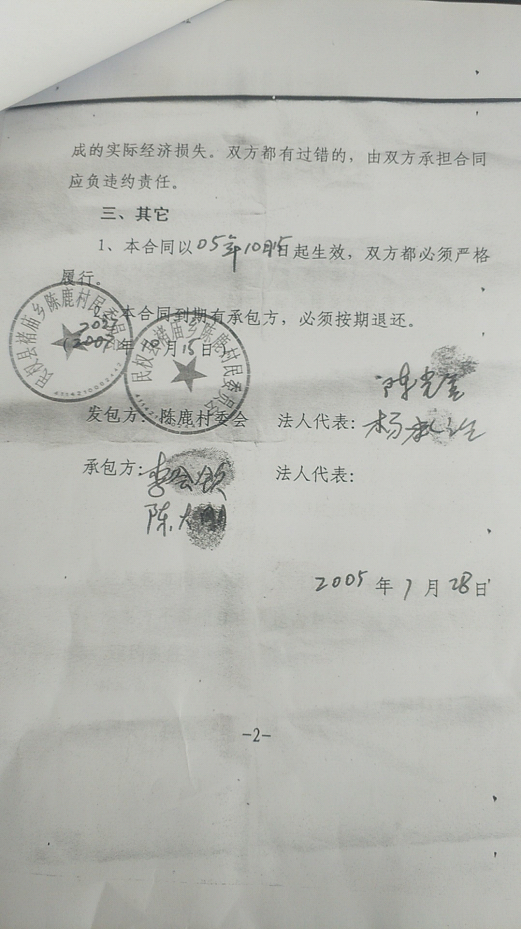 成的实际经济损失。双方都有过错的，由双方承担合同
应负违约责任。
三、其它
1、本合同以05年10月15日起生效，双方都必须严格
履行。
2、本合同到期有承包方，必须按期退还。
年10月15日
民权县褚庙乡陈鹿村民委员会
民权县褚庙乡陈鹿村民委员会
发包方：陈鹿村委会 法人代表：
杨
承包方：李会锁 法人代表：
陈大
2005年7月28日
-2-